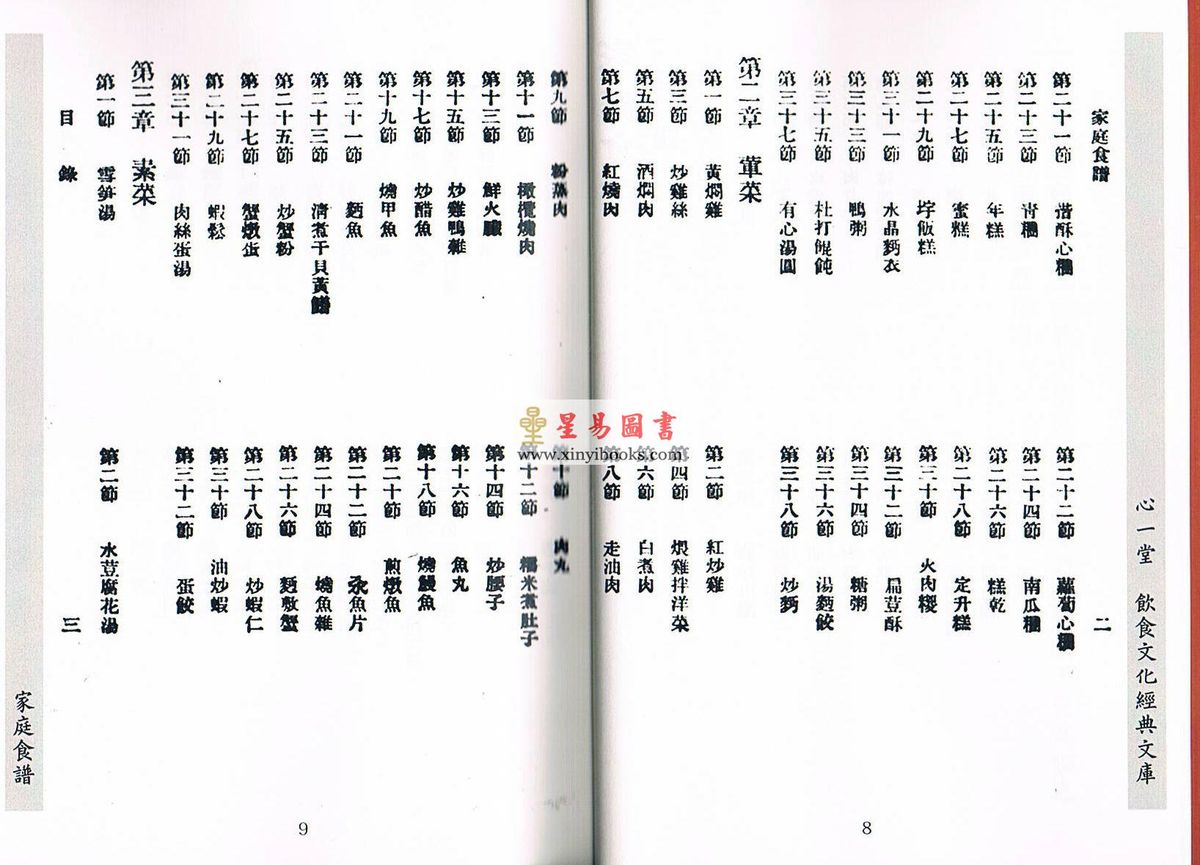 心一堂 飲食文化經典文庫
家庭食譜 二
第二十一節 蒩酥心糰 第二十二節 蘿蔔心糰
第二十三節 靑糰 第二十四節 南瓜糰
第二十五節 年糕 第二十六節 糕乾
第二十七節 蜜糕 第二十八節 定升糕
第二十九節 垶飯糕 第三十節 火肉糭
第三十一節 水晶麪衣 第三十二節 扁荳酥
第三十三節 鴨粥 第三十四節 糖粥
第三十五節 杜打餛飩 第三十六節 湯麪餃
第三十七節 有心湯圓 第三十八節 炒麪
第二章 葷菜
第一節 黃燜雞 第二節 紅炒雞
第三節 炒雞絲 第四節 煨雞拌洋菜
第五節 酒燜肉 第六節 白煮肉
第七節 紅燒肉 第八節 走油肉
8
第九節 粉蒸肉 第十節 肉丸
第十一節 橄欖燒肉 第十二節 糯米煮肚子
第十三節 鮮火臘 第十四節 炒腰子
第十五節 炒雞鴨雜 第十六節 魚丸
第十七節 炒醋魚 第十八節 燒鰻魚
第十九節 燒甲魚 第二十節 煎燉魚
第二十一節 麪魚 第二十二節 汆魚片
第二十三節 淸煮干貝黃鱔 第二十四節 燒魚雜
第二十五節 炒蟹粉 第二十六節 麪敷蟹
第二十七節 蟹燉蛋 第二十八節 炒蝦仁
第二十九節 蝦鬆 第三十節 油炒蝦
第三十一節 肉絲蛋湯 第三十二節 蛋餃
第三章 素菜
第一節 雪筍湯 第二節 水荳腐花湯
目錄 三
家庭食譜
9
星易圖書
www.xinyibooks.com